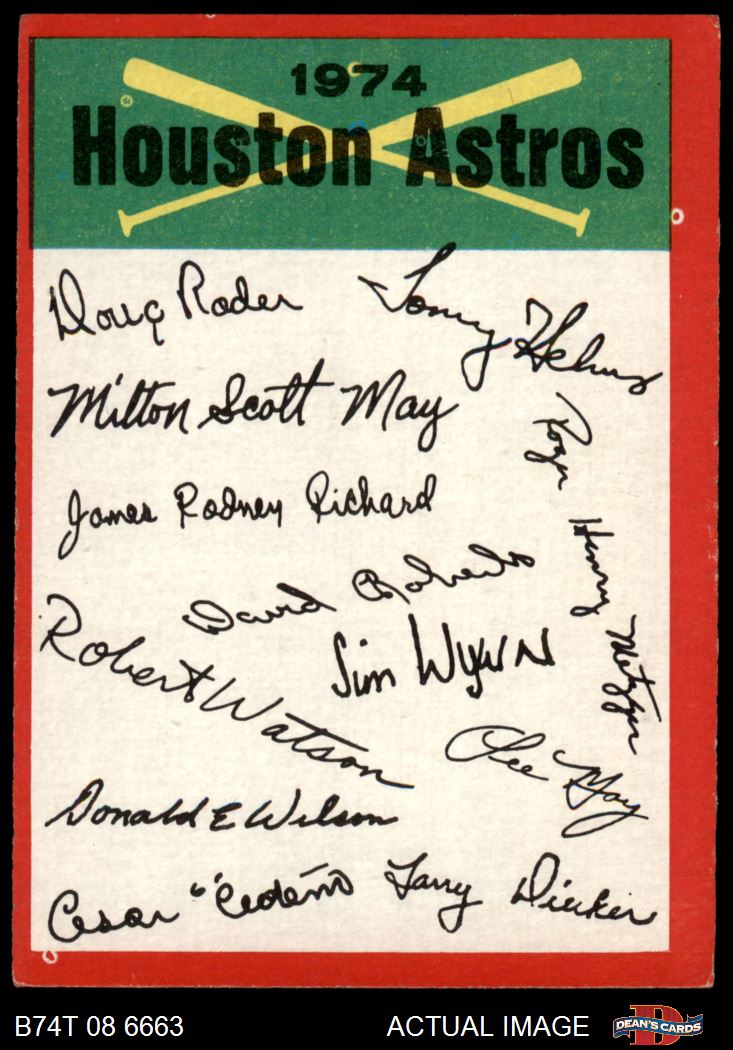 1974
Houston Astros
Doug Rader
Tommy Helms
Milton Scott May
Roger Henry Metzger
James Rodney Richard
David Roberts
Robert Watson
Jim Wynn
Lee May
Donald E Wilson
Cesar "Cedeño
Larry Dierker
B74T 08 6663
ACTUAL IMAGE
DEAN'S CARDS